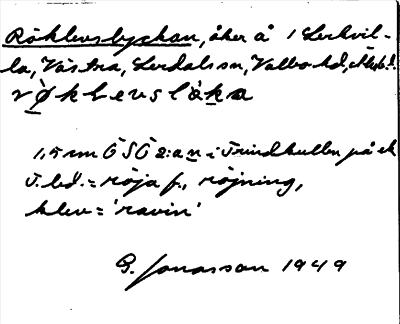 Röklevslyckan, åker å 1 Lerkvil-
la, Västra, Lerdals sn, Valbo hd, Älvsb. l.
røklevslàka
1,5 mm ÖSÖ 2:a n i Trindkullen på ek
T. bd. = röja f., röjning,
klev = 'ravin'
G. Jonasson 1949